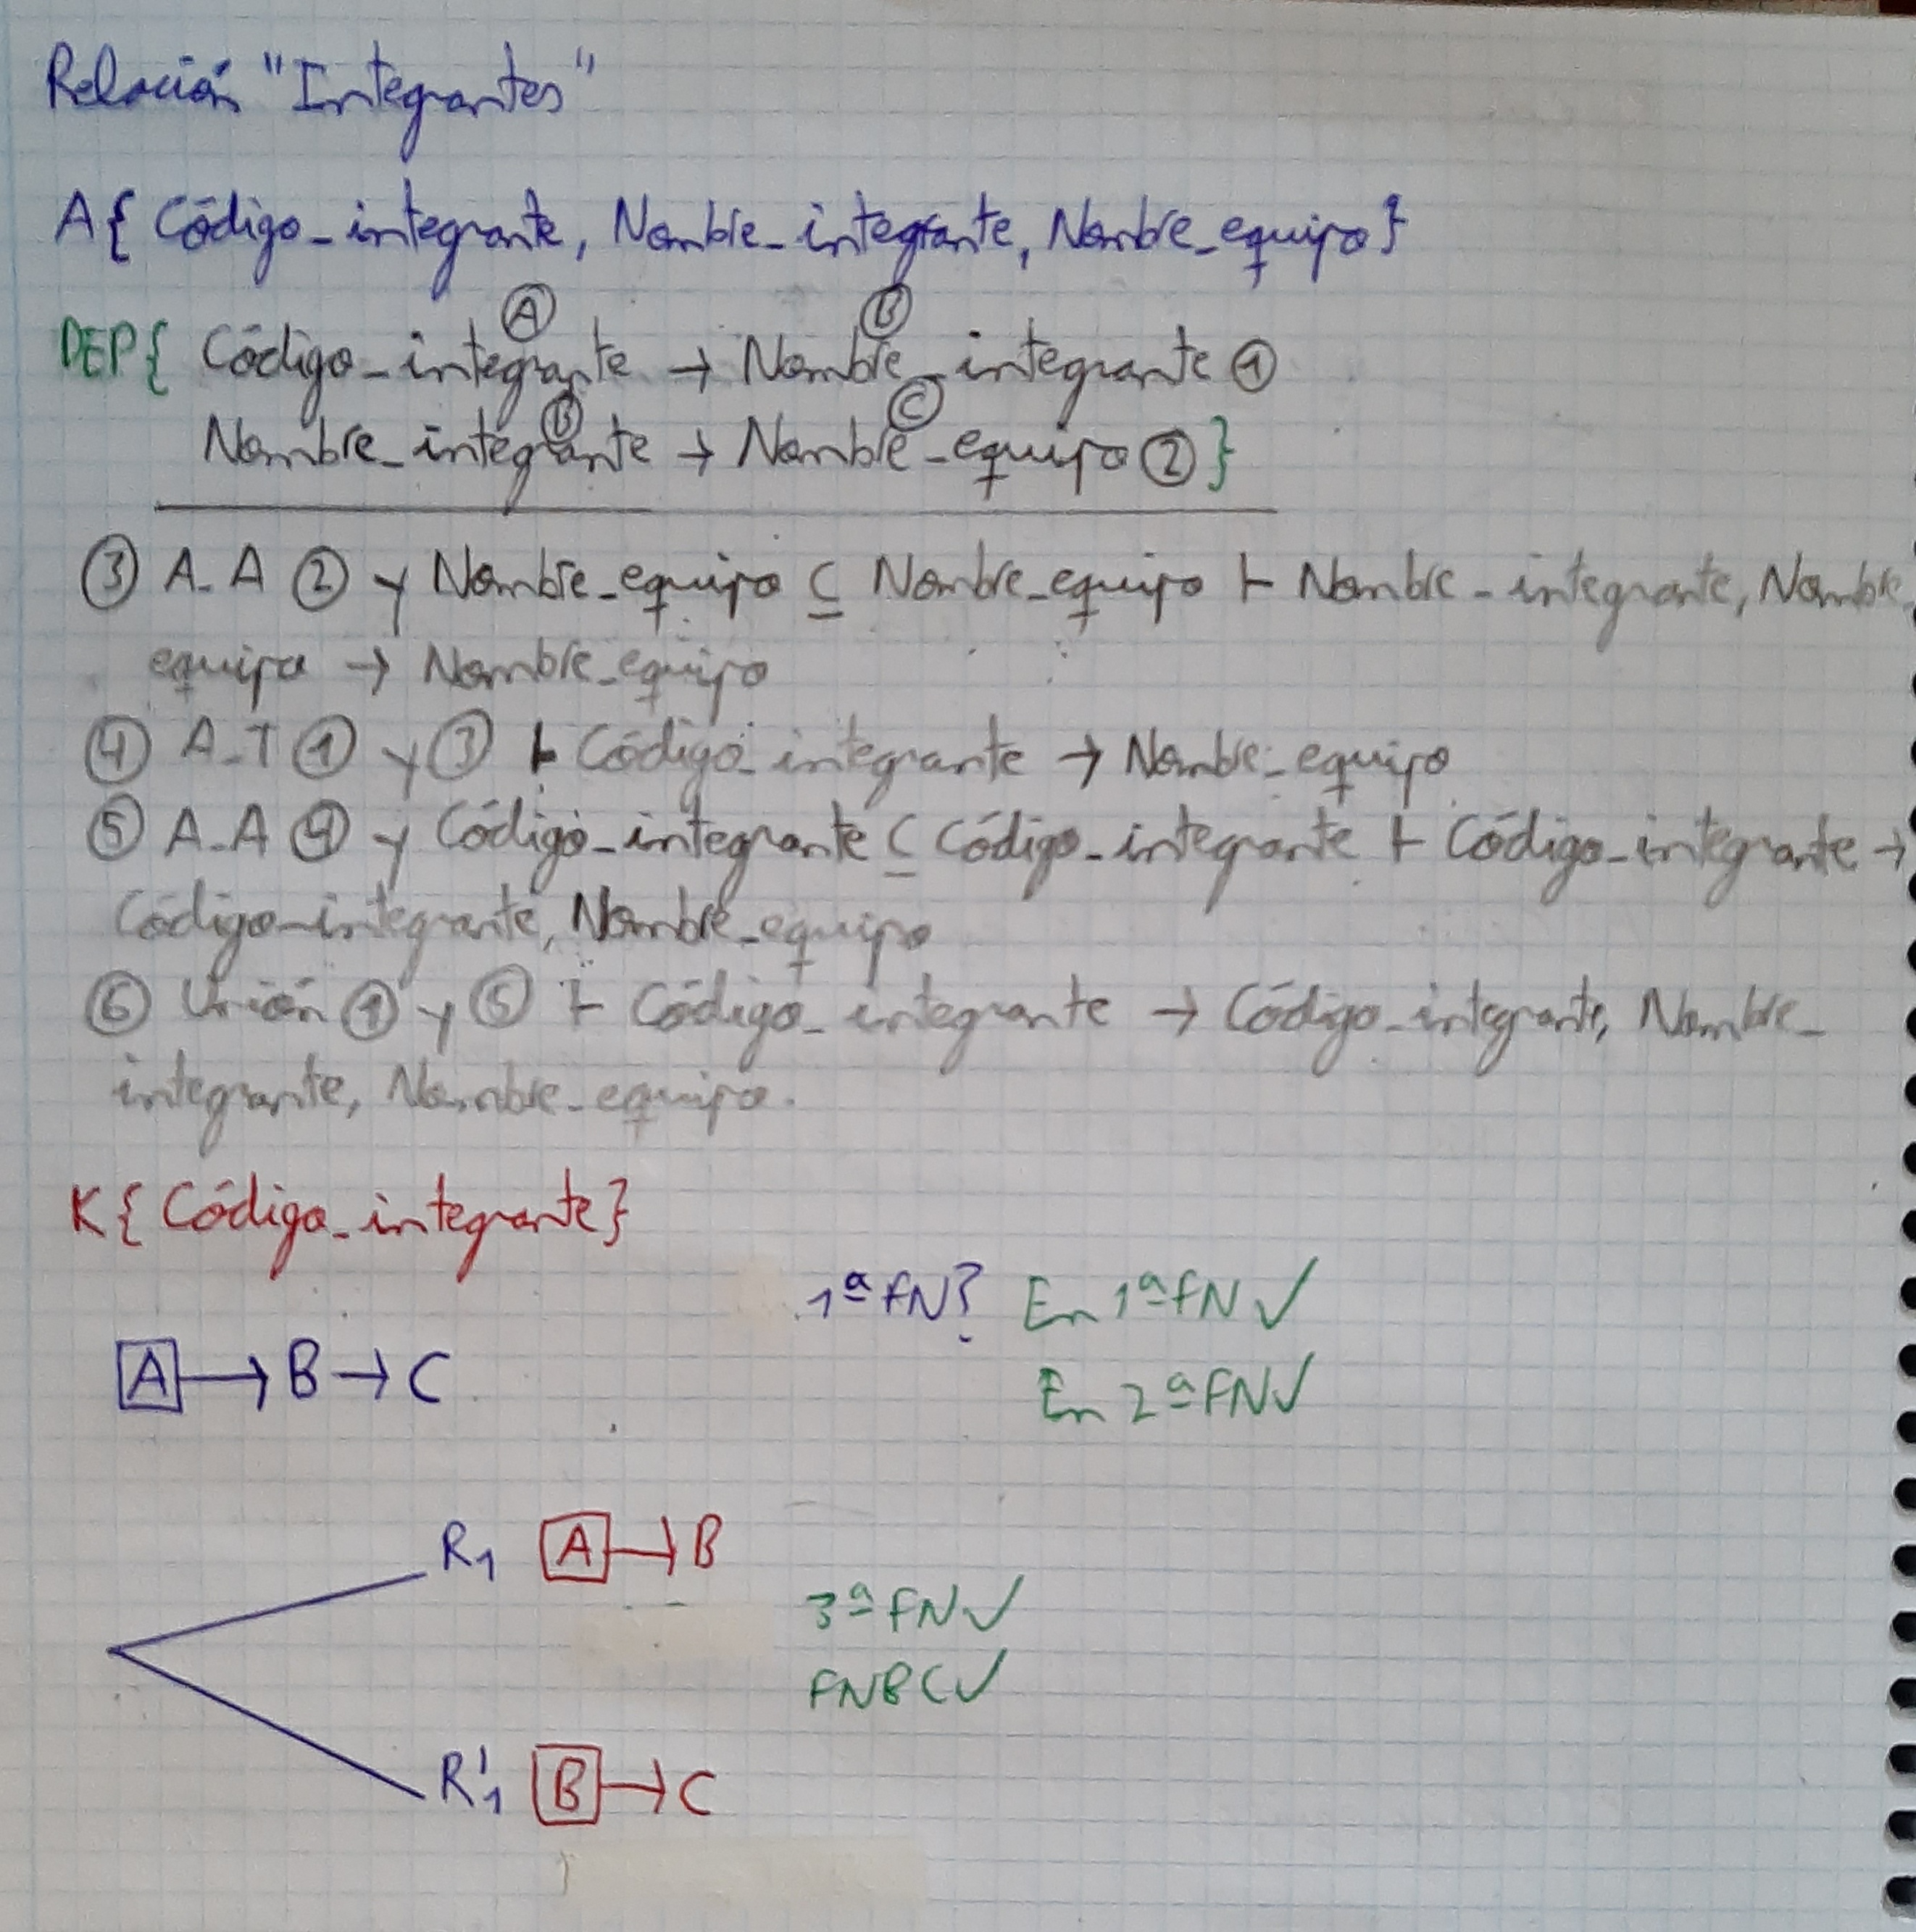 Relación "Integrantes"
A{ Código_integrante, Nombre_integrante, Nombre_equipo}
Ⓐ Ⓑ
DEP{ Código_integrante → Nombre_integrante ①
Ⓑ Ⓒ
Nombre_integrante → Nombre_equipo ② }
③ A.A ② y Nombre_equipo ⊆ Nombre_equipo ⊢ Nombre_integrante, Nombre_
equipo → Nombre_equipo
④ A.T ① y ③ ⊢ Código_integrante → Nombre_equipo
⑤ A.A ④ y Código_integrante ⊆ Código_integrante ⊢ Código_integrante →
Código_integrante, Nombre_equipo
⑥ Unión ① y ⑤ ⊢ Código_integrante → Código_integrante, Nombre_
integrante, Nombre_equipo.
K{ Código_integrante}
1ª FN? En 1ª FN ✓
A → B → C
En 2ª FN ✓
R1 A → B
3ª FN ✓
FNBC ✓
R'1 B → C